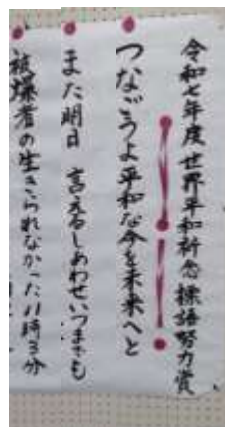 令和七年度世界平和祈念標語努力賞
つなごうよ平和な今を未来へと
また明日 言えるしあわせいつまでも
被爆者の生きられなかった11時3分